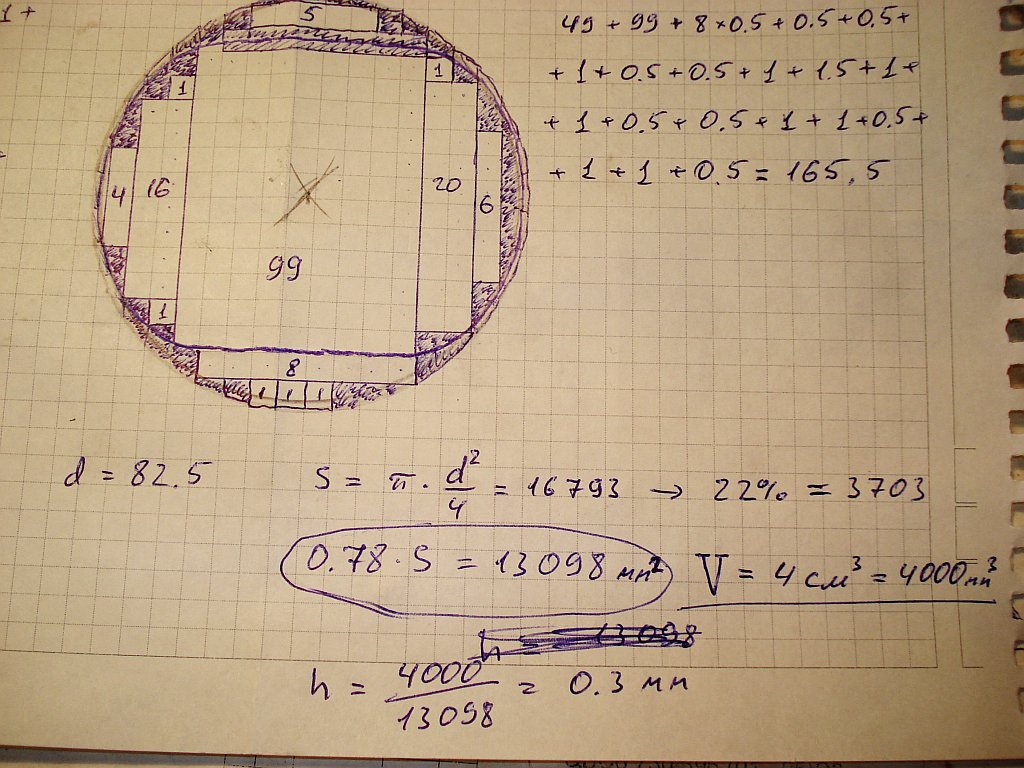 1 +
49 + 99 + 8 × 0.5 + 0.5 + 0.5 +
+ 1 + 0.5 + 0.5 + 1 + 1.5 + 1 +
+ 1 + 0.5 + 0.5 + 1 + 1 + 0.5 +
+ 1 + 1 + 0.5 = 165.5
5
1
1
4
16
20
6
99
1
8
1 1 1
d = 82.5
S = π · d²/4 = 16793 → 22% = 3703
0.78 · S = 13098 мм²
V = 4 см³ = 4000 мм³
h = 13098
h = 4000/13098 = 0.3 мм